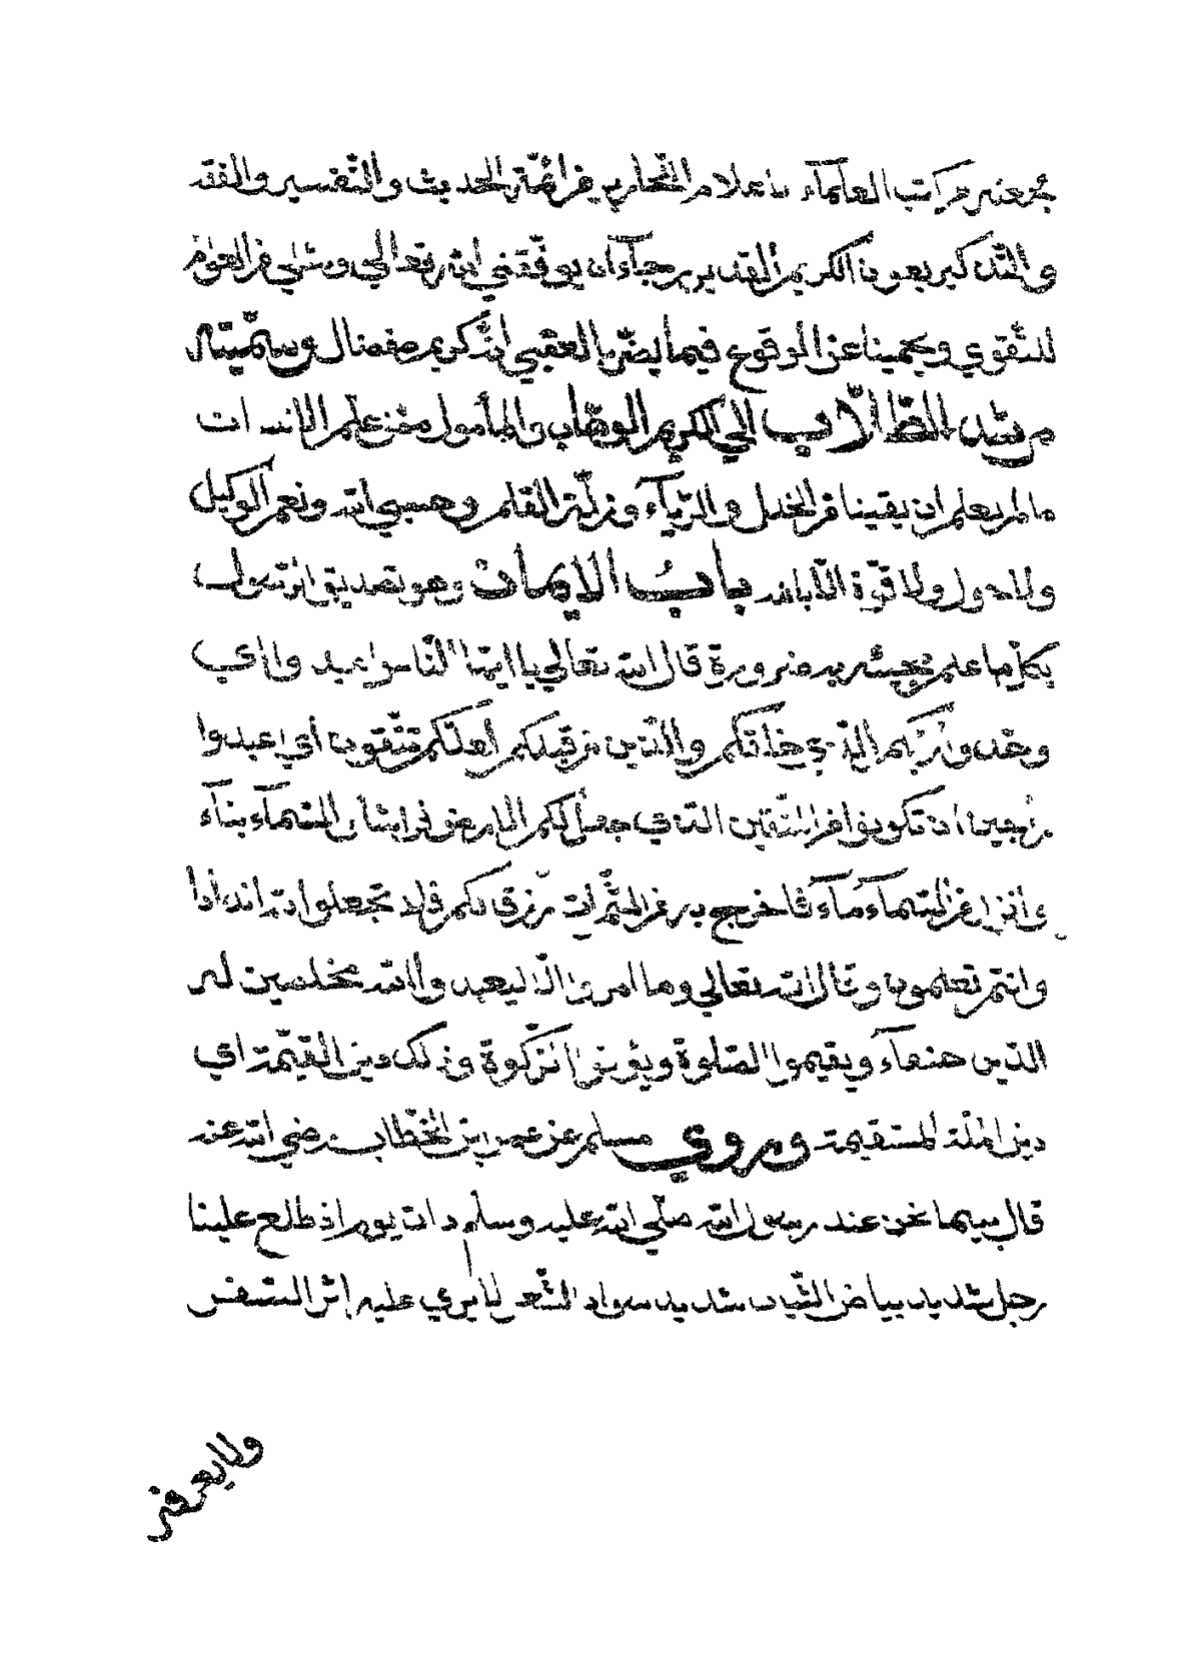 جمعته من كتب العلماء باعلام النحارير من ائمة الحديث والتفسير والفقه
والتذكير بعون الكريم القدير رجاء ان يوفقني الله تعالى وسائر العوام
للتقوي ويحمينا عن الوقوع فيما يضر بالعقبي انه كريم مفضال وسميته
مرشد الطلاب الي الكريم الوهاب والمأمول ممن علم الانسان
ما لم يعلم ان يقينا من الخلل والرياء وزلة القلم وحسبي الله ونعم الوكيل
ولا حول ولا قوة الا بالله باب الايمان وهو تصديق الرسول
بكل ما علم مجيئه به ضرورة قال الله تعالي يا ايها الناس اعبدوا أي
وحدوا ربكم الذي خلقكم والذين من قبلكم لعلكم تتقون أي اعبدوا
راجين ان تكونوا من المتقين الذي جعل لكم الارض فراشا والسماء بناء
وانزل من السماء ماء فاخرج به من الثمرات رزقا لكم فلا تجعلوا لله اندادا
وانتم تعلمون وقال الله تعالي وما امروا الا ليعبدوا الله مخلصين له
الدين حنفاء ويقيموا الصلوة ويؤتوا الزكوة وذلك دين القيمة اي
دين الملة المستقيمة وروي مسلم عن عمر ابن الخطاب رضي الله عنه
قال بينما نحن عند رسول الله صلي الله عليه وسلم ذات يوم اذ طلع علينا
رجل شديد بياض الثياب شديد سواد الشعر لا يري عليه اثر السفر
ولا يعرفه